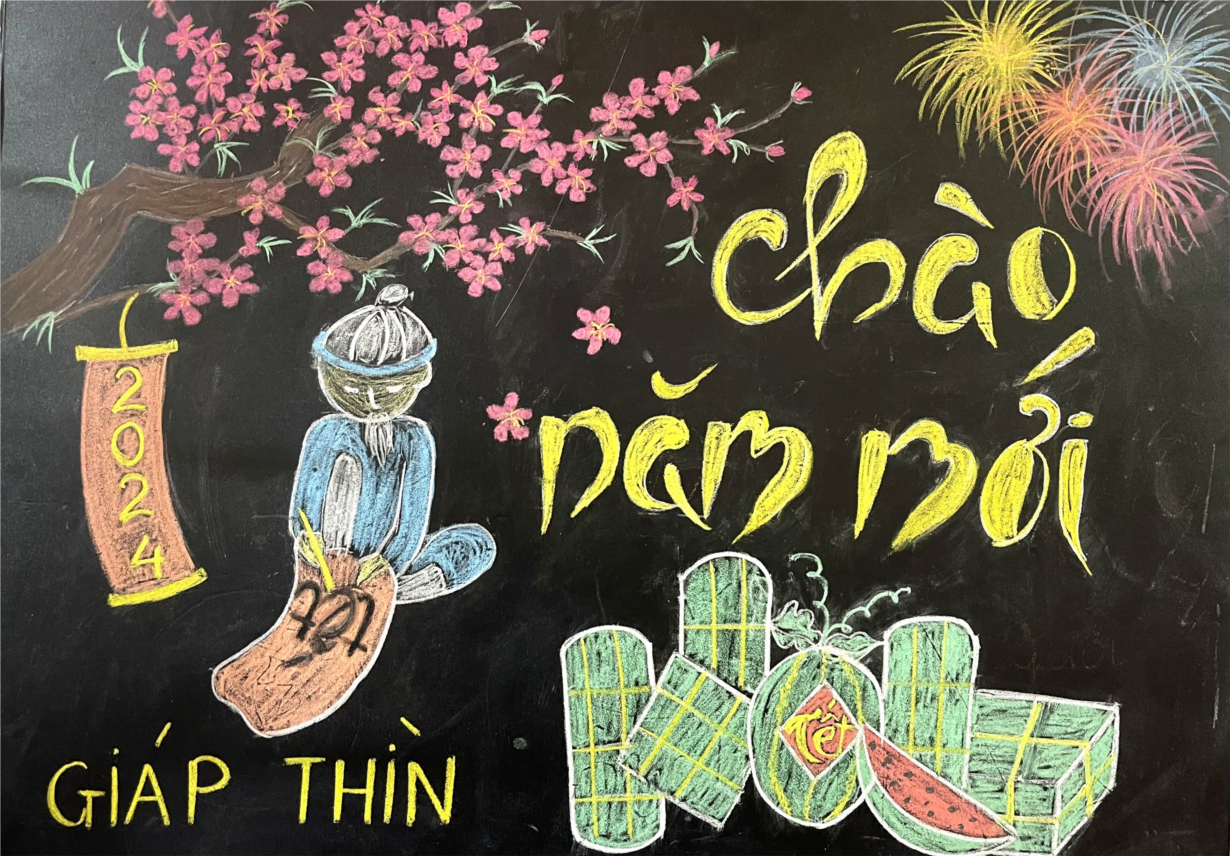 chào
năm mới
2024
Tết
Tết
GIÁP THÌN